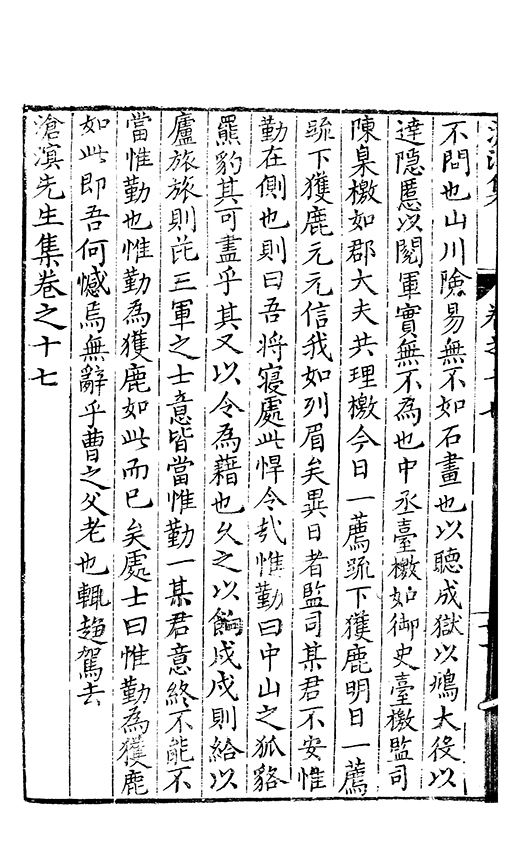 不問也山川險易無不如石畫也以聽成獄以鳩大役以
達隱慝以閱軍實無不為也中丞臺檄如御史臺檄監司
陳臬檄如郡大夫共理檄今日一薦疏下獲鹿明日一薦
疏下獲鹿元元信我如列眉矣異日者監司某君不安惟
勤在側也則曰吾將寢處此悍令哉惟勤曰中山之狐貉
羆豹其可盡乎其又以令為藉也久之以餉戍戍則給以
廬旅旅則茈三軍之士意皆當惟勤一某君意終不能不
當惟勤也惟勤為獲鹿如此而已矣處士曰惟勤為獲鹿
如此即吾何憾焉無辭乎曹之父老也輒趨駕去
滄溟先生集卷之十七
滄溟集
卷之十七